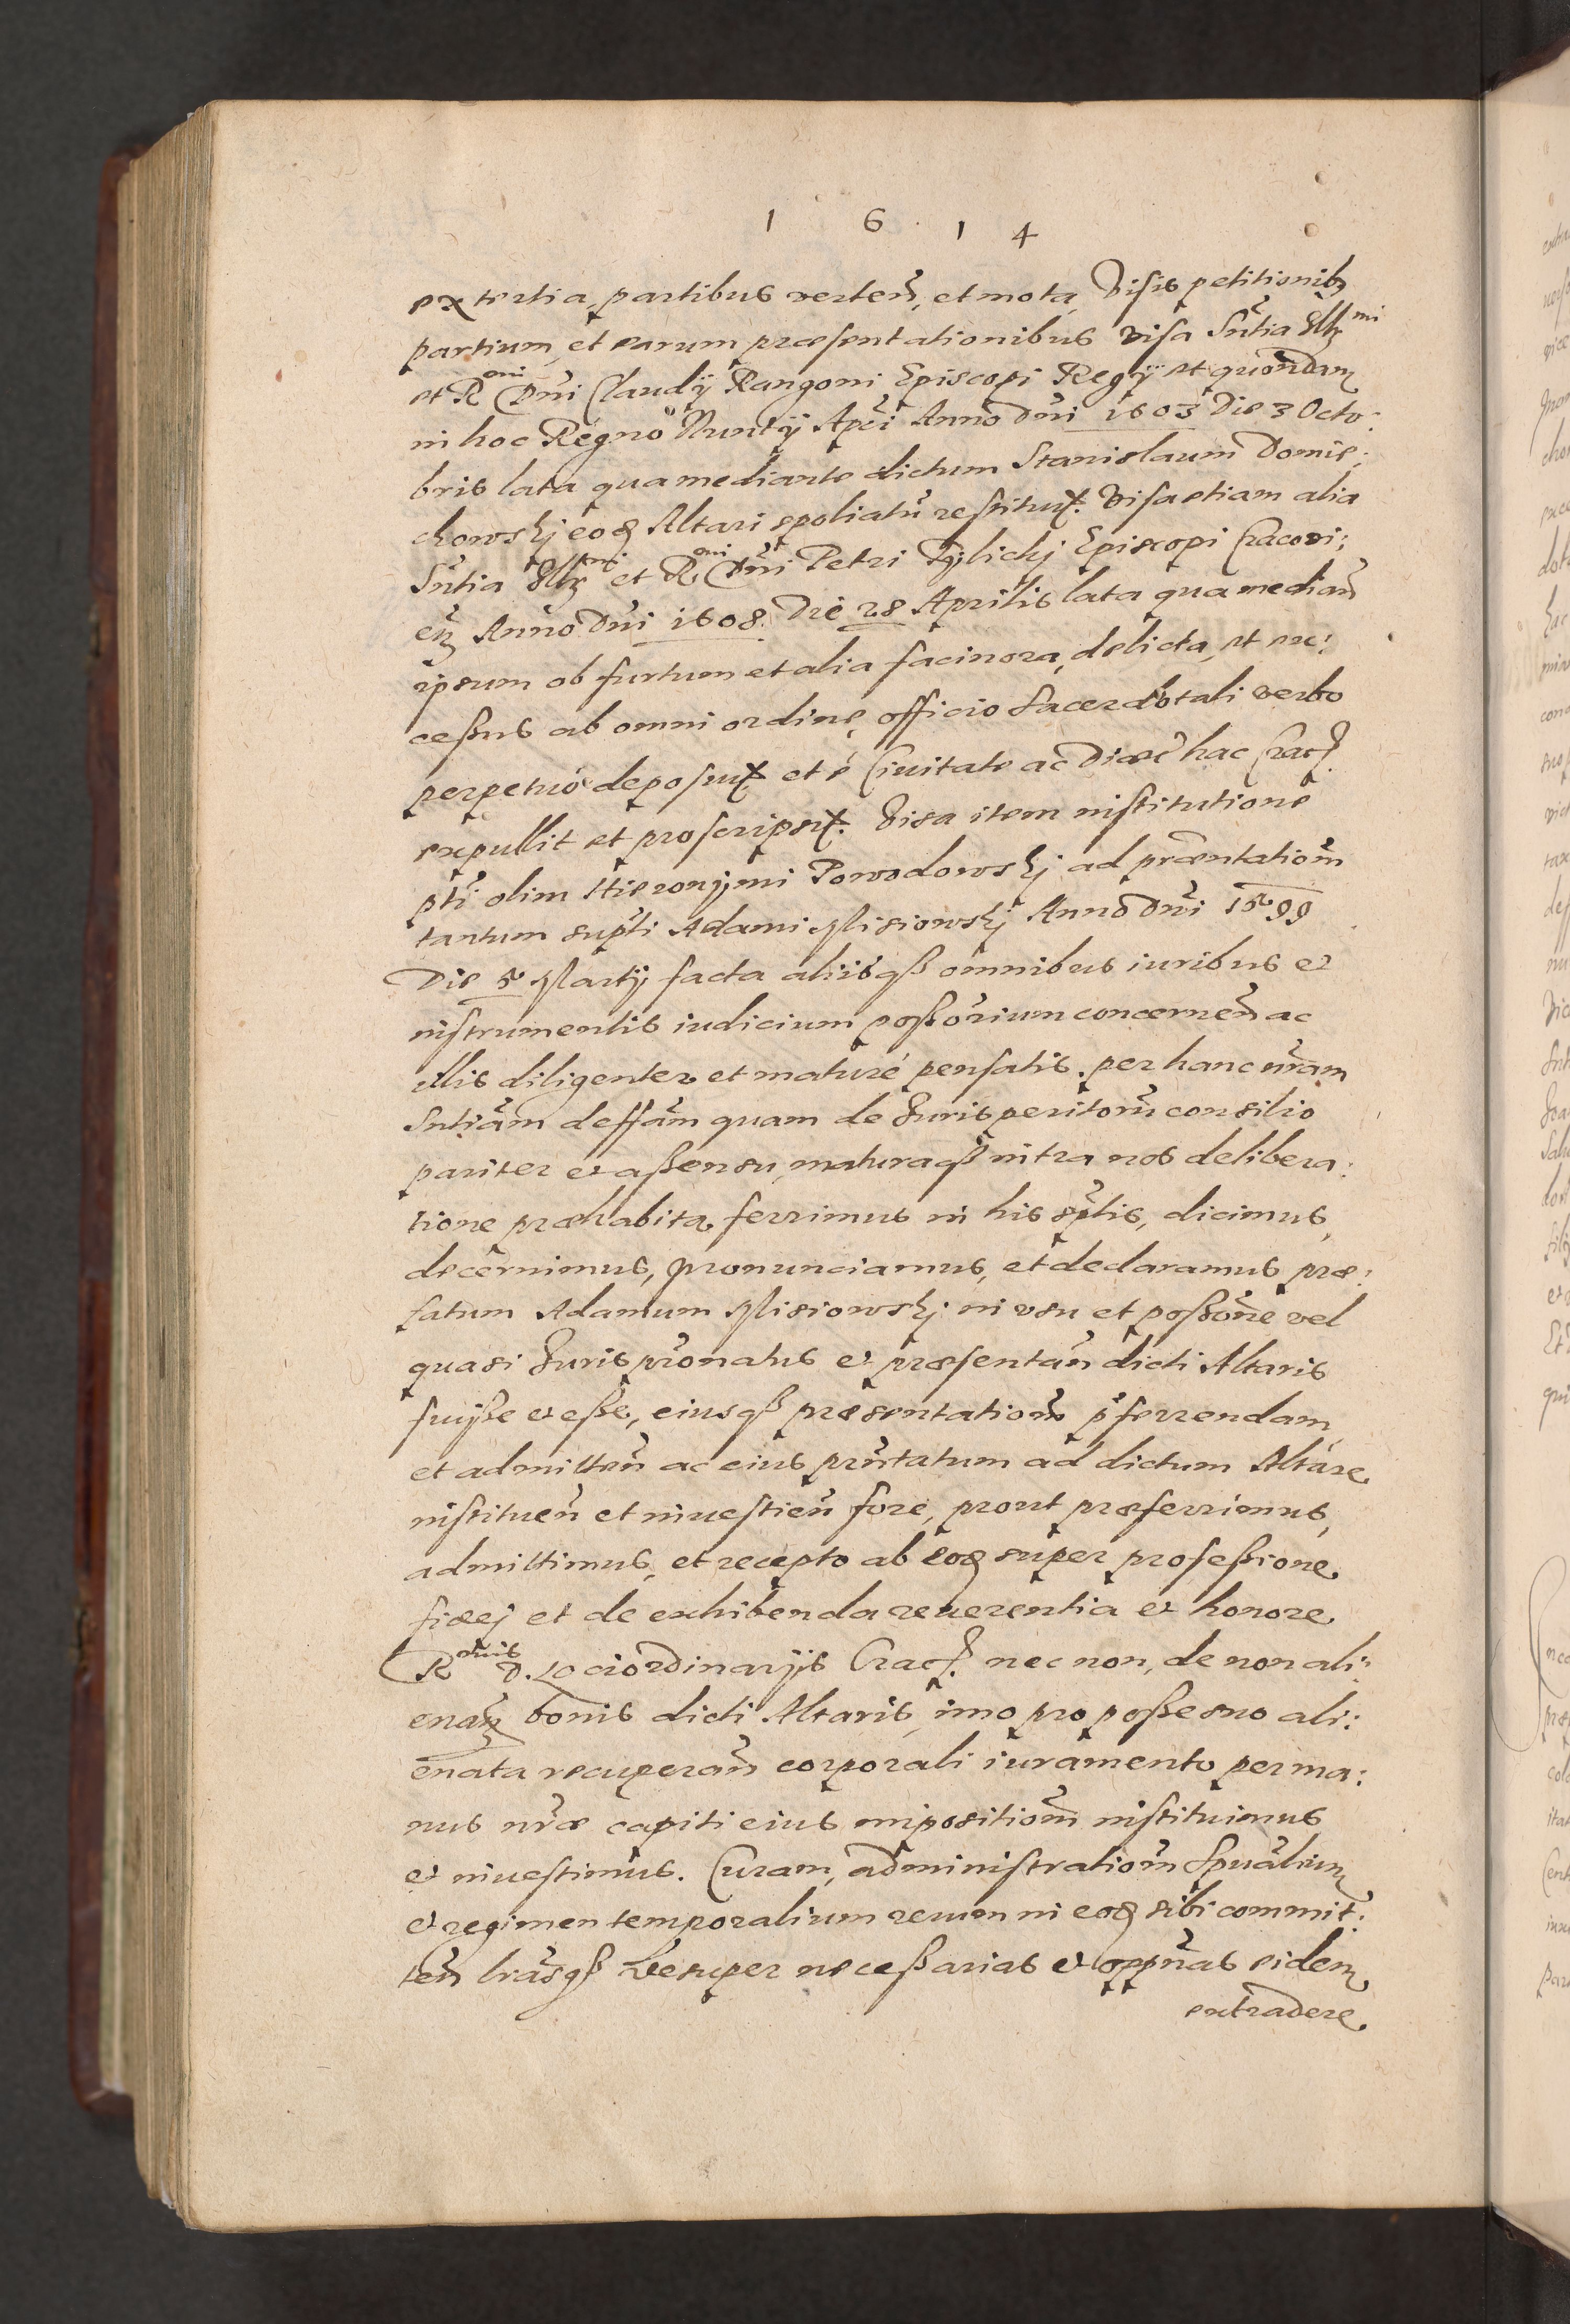 1 6 1 4
ex tertia, partibus verteñ, et mota, Visis petitionib9
partium, et earum præsentationibus visa Sñtia Illr mi
et R mi Dñi Claudij Rangoni Episcopi Regij et quondam
in hoc Regno Nuntij Aplici Anno Dñi 1603 Die 3 Octo:
bris lata qua mediante dictum Stanislaum Domie:
chowskj eod Altari spoliatũ restituit. Visa etiam alia
Sñtia Illr mi et R mi Dñi Petri Tylickj Episcopi Cracovi:
eñ Anno Dñi 1608. Die 28 Aprilis lata qua medianͤ
ipsum ob furtum et alia facinora, delicta, et ex:
cessus ab omni ordine, officio sacerdotali verbo
perpetuò deposuit, et è Ciuitate ac Diæc̃ hac Crac.
expullit et proscripsit. Visa item institutione
pti olim Hieronymi Powodowskj ad præntatioñm
tantum supti Adami Misiowskj Anno Dñi 1599
Die 5 Martij facta aliisq3 omnibus iuribus et
instrumentis iudicium possõrium concerneñ ac
illis diligenter et maturè pensatis. per hanc ñram
Sntiãm deffãm quam de Iuris peritorũ consilio
pariter et assensu, maturaq3 intra nos delibera:
tione præhabita, ferrimus in his sptis, dicimus,
decernimus, pronunciamus, et declaramus præ:
fatum Adamum Misiowskj in vsu et possõne vel
quasi Iurispronatus et præsentañ dicti Altaris
fuisse et esse, eiusq3 præsentationẽ p̃ferrendam,
et admitteñ ac eius prñtatum ad dictum Altare
instituen̄ et inuestien̄ fore, prout præferrimus,
admittimus, et recepto ab eod super professione
fidej et de exhibenda reuerentia et honore
R mis D. Loci ordinarijs Crac. nec non, de non ali:
enañ bonis dicti Altaris, imo pro posse suo ali:
enata recuperañ corporali iuramento per ma:
nus ñræ capiti eius impositioñm instituimus
et inuestimus. Curam, administratioñm Spũalium
et regimen temporalium rerum in eod sibi commit:
teñ lrãsq3 desuper necessarias et oppñas eidem
extradere